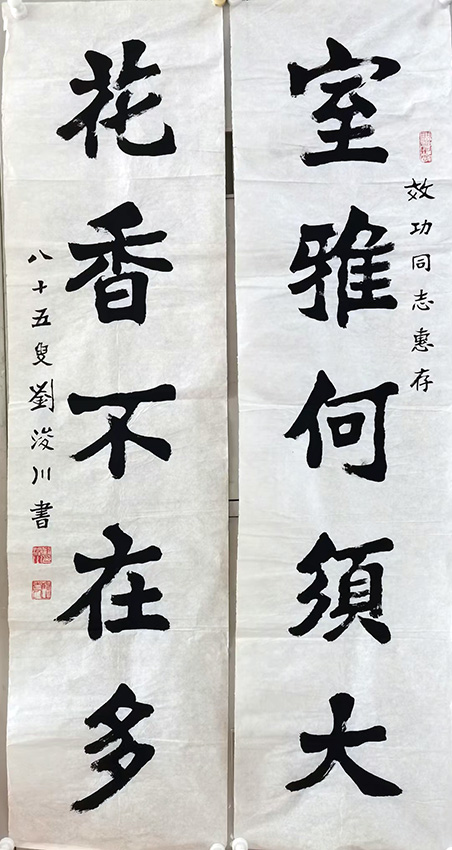 室雅何須大
效功同志惠存
花香不在多
八十五叟劉浚川書